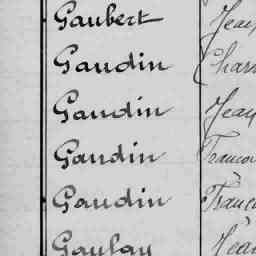 Gaubert Jean
Gaudin Char
Gaudin Jean
Gaudin Franço
Gaudin Franço
Gaulay Jean